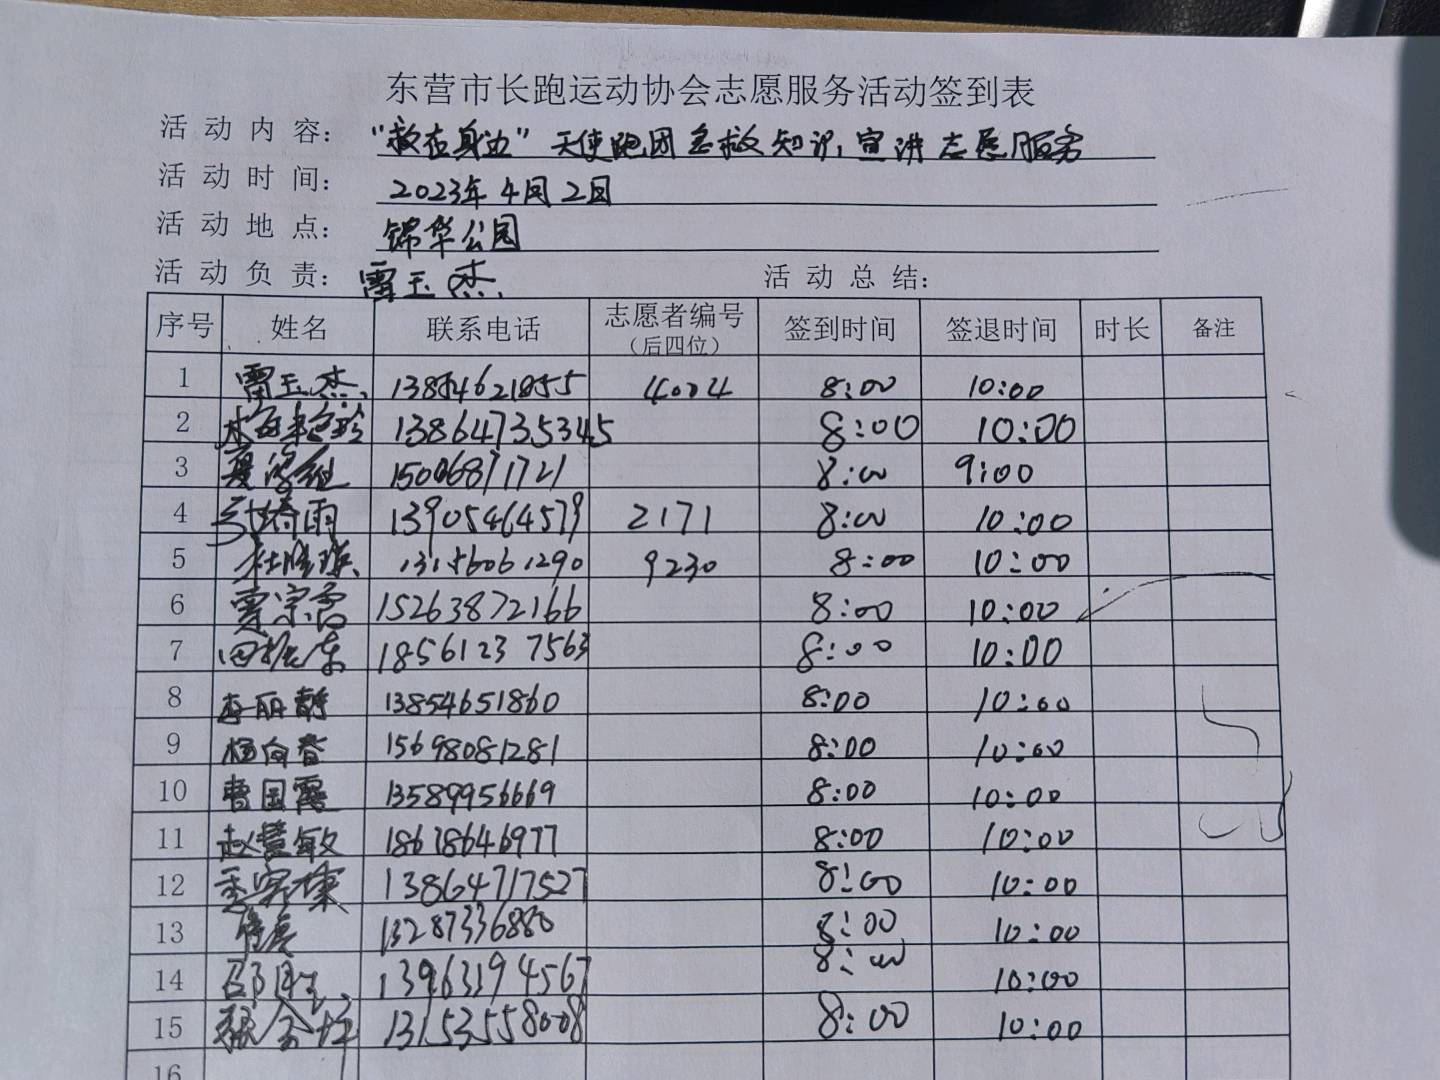 东营市长跑运动协会志愿服务活动签到表
活动内容："救在身边"天使跑团急救知识宣讲志愿服务
活动时间：2023年4月2日
活动地点：锦华公园
活动负责：雷玉杰 活动总结：
序号 姓名 联系电话 志愿者编号（后四位） 签到时间 签退时间 时长 备注
1 雷玉杰 13854621855 4024 8:00 10:00
2 13864735345 8:00 10:00
3 15006871721 8:00 9:00
4 13905464579 2171 8:00 10:00
5 13156061290 9230 8:00 10:00
6 15263872166 8:00 10:00
7 田振东 18561237563 8:00 10:00
8 李丽静 13854651860 8:00 10:00
9 杨向春 15698081281 8:00 10:00
10 曹国霞 13589956669 8:00 10:00
11 赵慧敏 18678646977 8:00 10:00
12 13864717527 8:00 10:00
13 13287336880 8:00 10:00
14 13963194567 8:00 10:00
15 13153558008 8:00 10:00
16